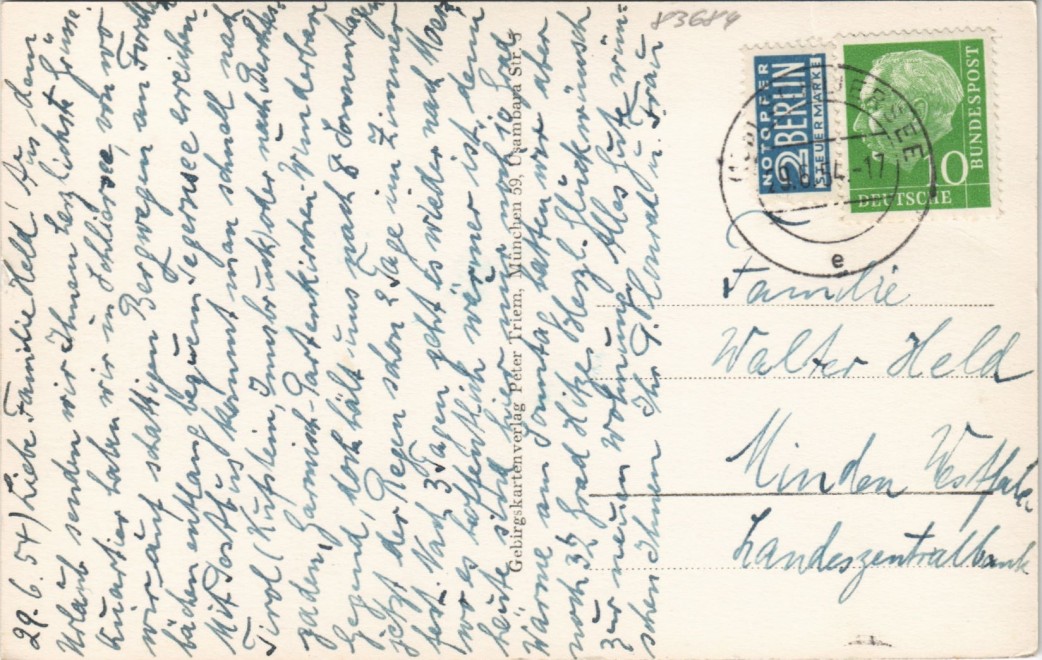 29.6.54) Liebe Familie Held! Aus dem
Urlaub senden wir Ihnen herzlichste Grüsse.
Quartier haben wir in Schliersee von wo
wir auf schattigen Bergwegen an Forellen
bächen entlang bequem Tegernsee erreichen.
Mit Postbus kommt man schnell nach
Tirol (Kufstein, Innsbruck) oder nach Berchtes
gaden, Garmisch-Partenkirchen. Wunderbare
Gegend, doch hält uns nach 8 Sonnentagen
jetzt der Regen schon 2 Tage im Zimmer
fest. Nach 3 Tagen geht es wieder nach Moers
wo es hoffentlich wärmer ist, denn
heute sind hier nur noch Grad
Wärme am Sonntag hatten wir aber
noch 32 Grad Hitze. Herzl. Glückwünsch
zur neuen Wohnung. Alles Gute wün=
schen Ihnen Ihr u. Frau
Gebirgskartenverlag Peter Triem, München 59, Usambara Str. 5
83684
NOTOPFER
2 BERLIN
STEUERMARKE
DEUTSCHE
BUNDESPOST
10
e
Familie
Walter Held
Minden Westfalen
Landeszentralbank